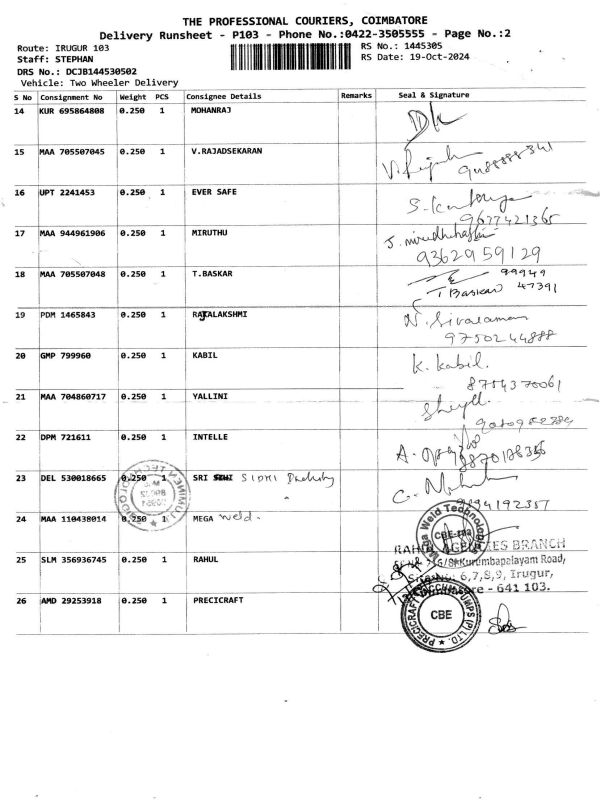 THE PROFESSIONAL COURIERS, COIMBATORE
Delivery Runsheet - P103 - Phone No.:0422-3505555 - Page No.:2
Route: IRUGUR 103 RS No.: 1445305
Staff: STEPHAN RS Date: 19-Oct-2024
DRS No.: DCJB144530502
Vehicle: Two Wheeler Delivery
S No Consignment No Weight PCS Consignee Details Remarks Seal & Signature
14 KUR 695864808 0.250 1 MOHANRAJ
15 MAA 705507045 0.250 1 V.RAJADSEKARAN
16 UPT 2241453 0.250 1 EVER SAFE
9677421365
17 MAA 944961906 0.250 1 MIRUTHU
9362959129
18 MAA 705507048 0.250 1 T.BASKAR 99949
T Baskar 47391
19 PDM 1465843 0.250 1 RAJALAKSHMI N. Sivaraman
9750244888
20 GMP 799960 0.250 1 KABIL K. Kabil.
8754370061
21 MAA 704860717 0.250 1 YALLINI
22 DPM 721611 0.250 1 INTELLE
23 DEL 530018665 0.250 1 SRI SIDHI
24 MAA 110438014 0.250 1 MEGA Weld.
Mega Weld Technologies
CBE
25 SLM 356936745 0.250 1 RAHUL AGENCIES BRANCH
Kurumbapalayam Road,
6,7,8,9, Irugur,
641 103.
26 AMD 29253918 0.250 1 PRECICRAFT
PUMPS (P) LTD.
CBE